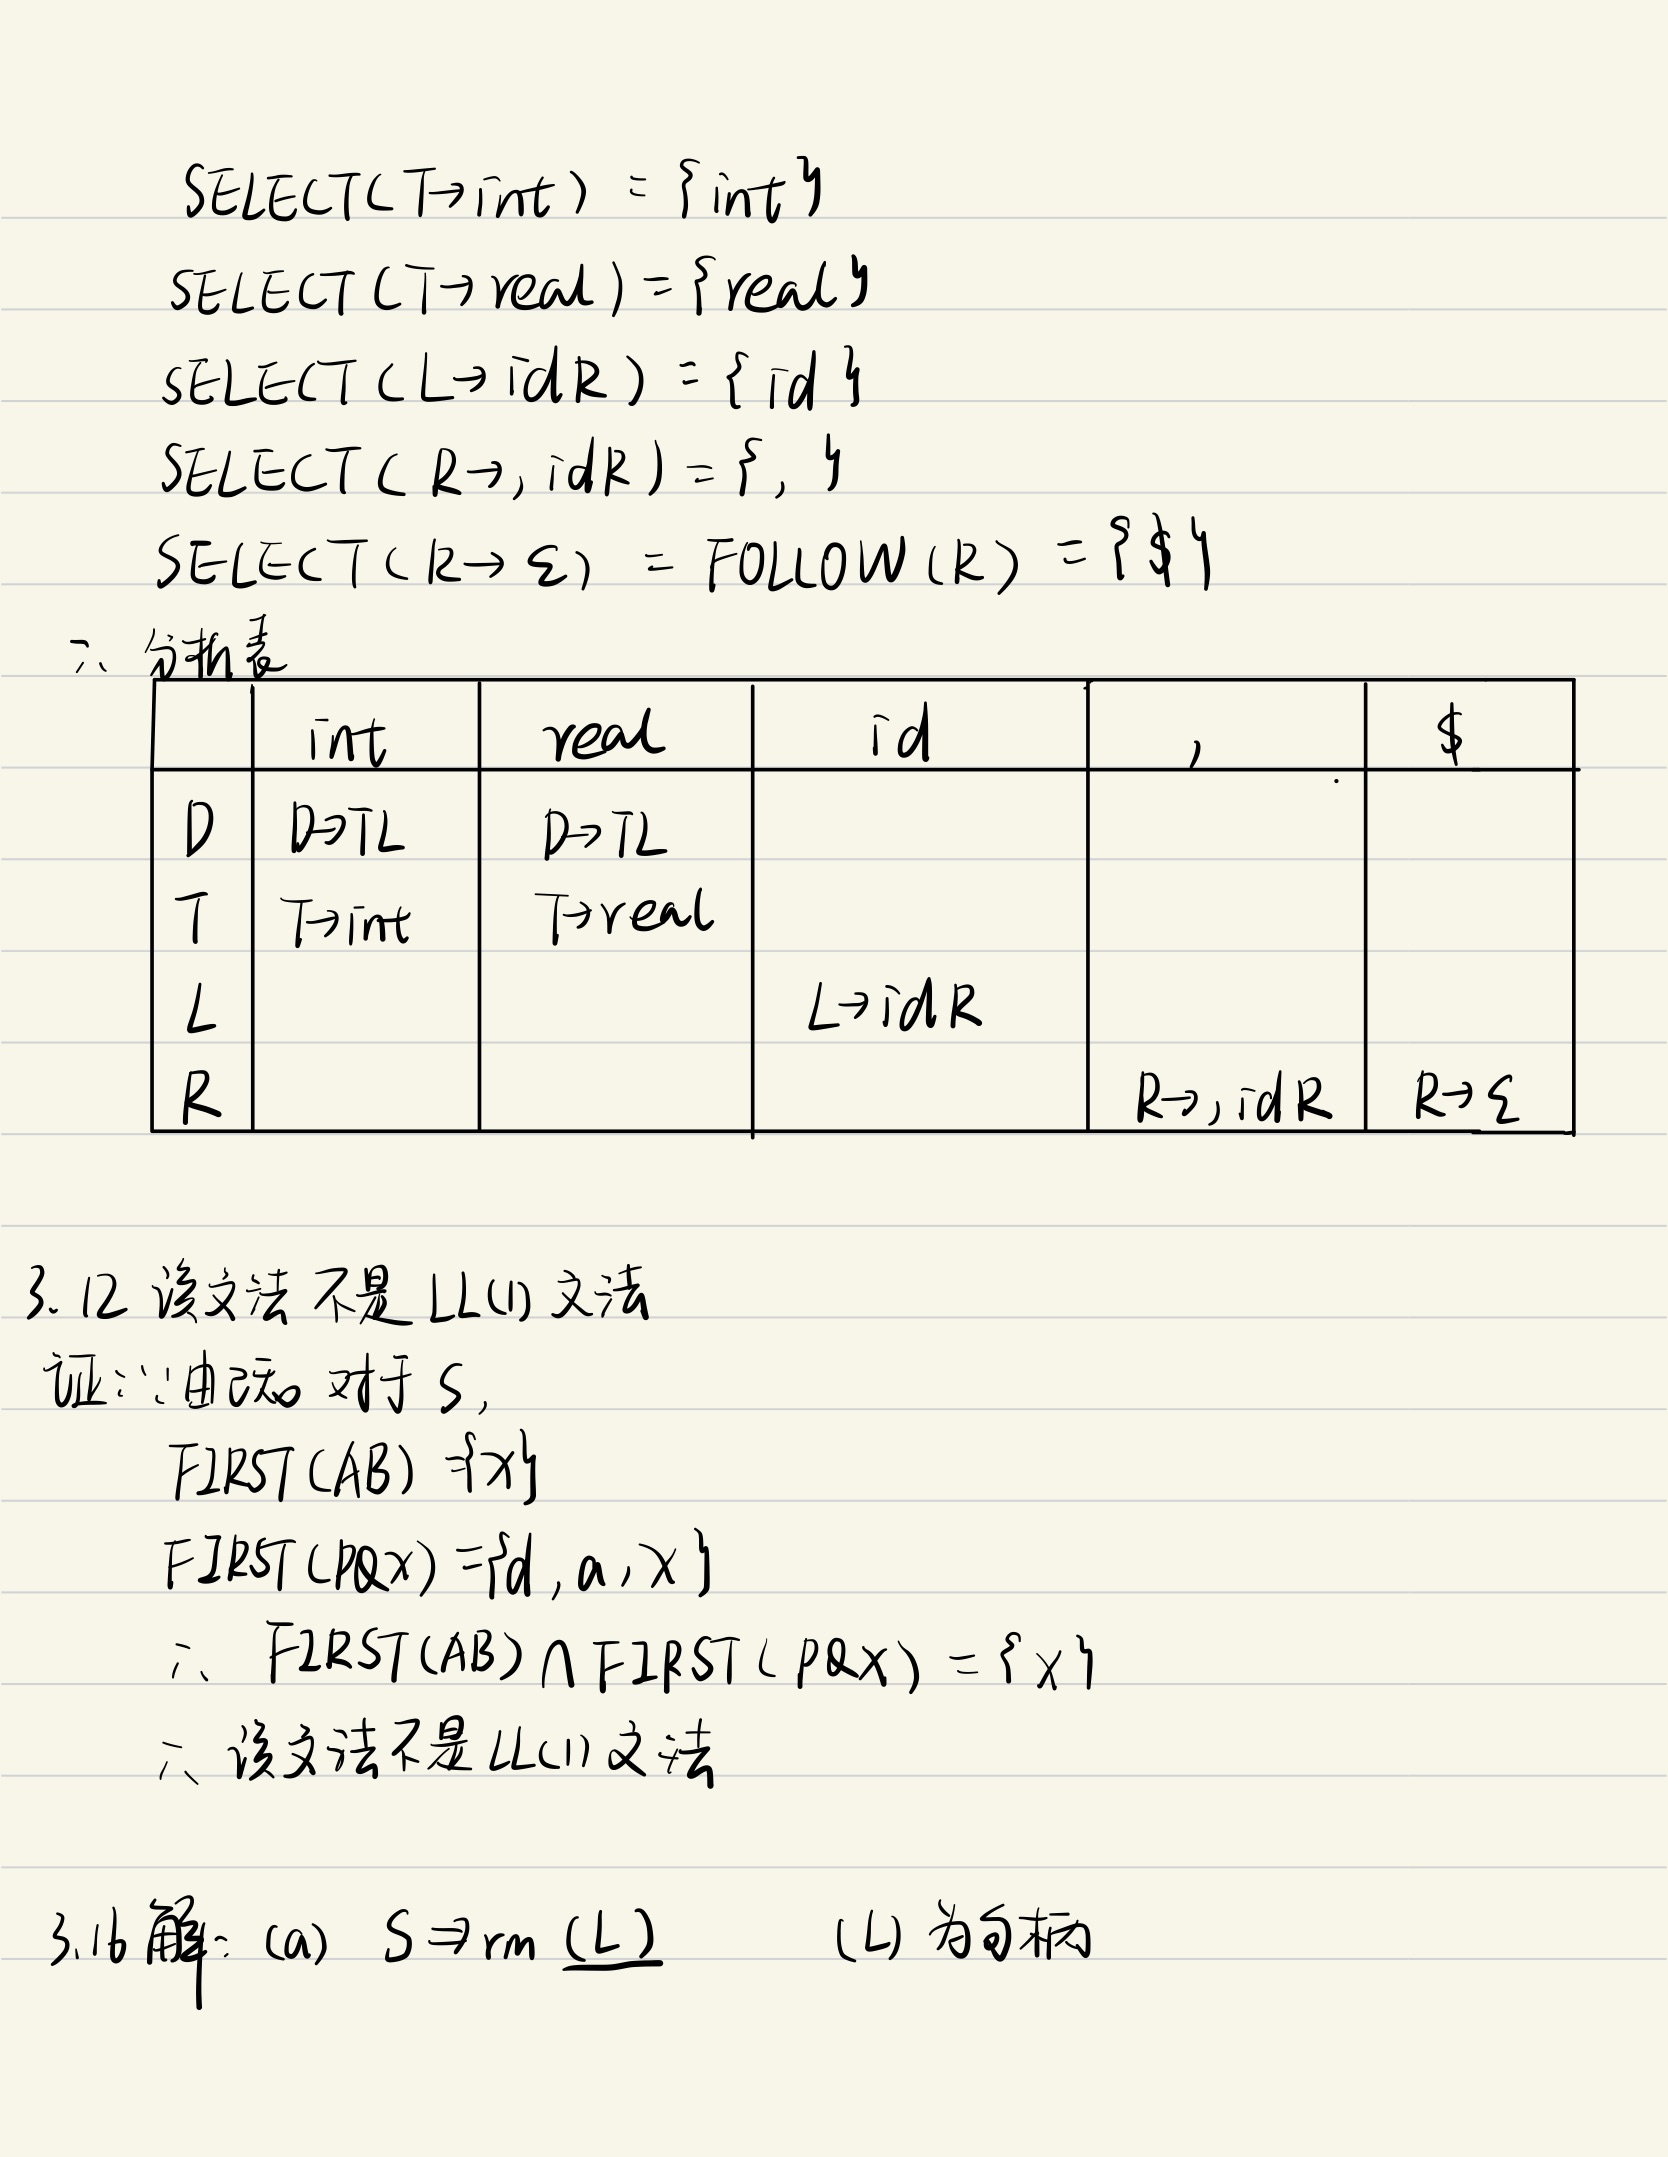 SELECT(T→int) = {int}
SELECT(T→real) = {real}
SELECT(L→idR) = {id}
SELECT(R→,idR) = {,}
SELECT(R→ε) = FOLLOW(R) = {$}
∴ 分析表
int real id , $
D D→TL D→TL
T T→int T→real
L L→idR
R R→,idR R→ε
3.12 该文法不是LL(1)文法
证:∵由已知 对于S,
FIRST(AB) = {x}
FIRST(PQx) = {d,a,x}
∴ FIRST(AB)∩FIRST(PQx) = {x}
∴ 该文法不是LL(1)文法
3.16 解: (a) S⇒rm (L) (L)为句柄